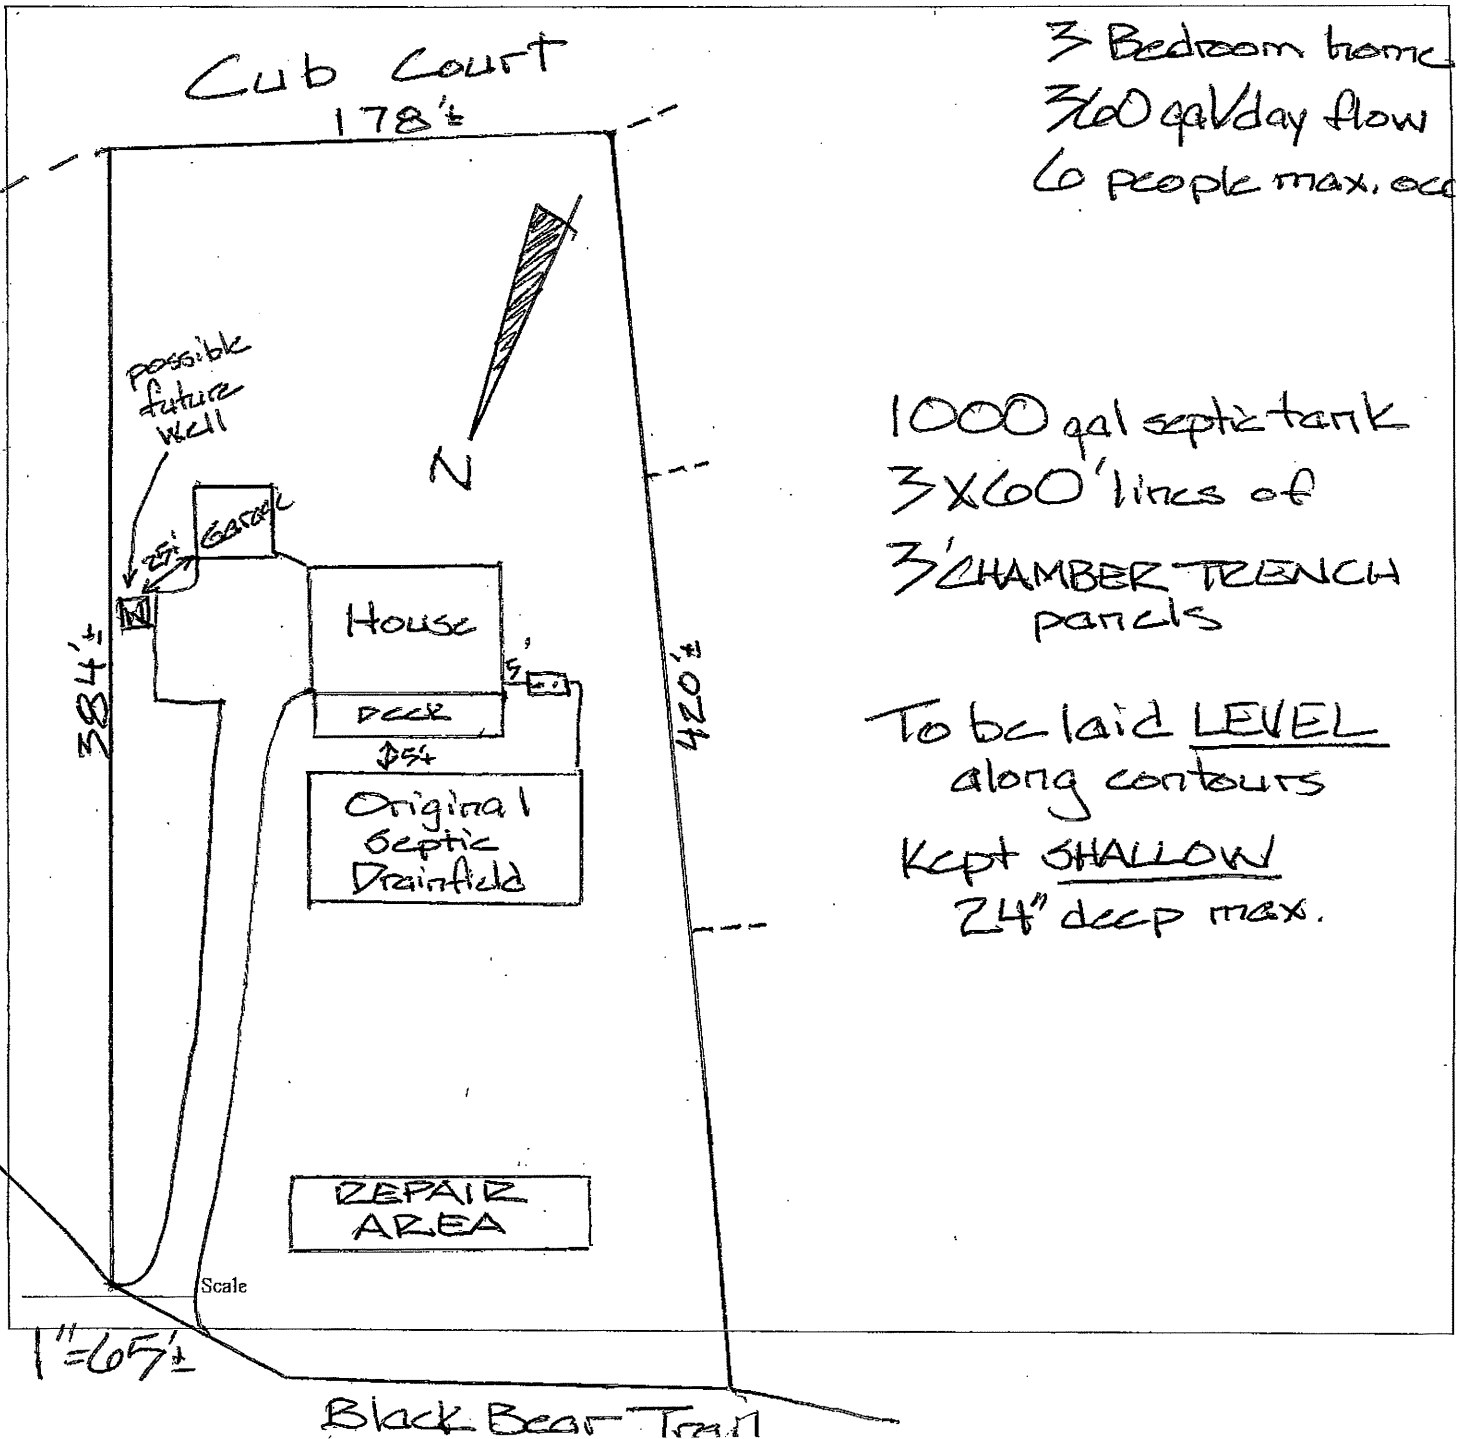 Cub Court
178'±
3 Bedroom home
360 gal/day flow
6 people max. occ
possible
future
well
N
Garage
25'
W
House
5'
Deck
5'±
384'±
420'±
Original
Septic
Drainfield
1000 gal septic tank
3X60' lines of
3' CHAMBER TRENCH
panels
To be laid LEVEL
along contours
Kept SHALLOW
24" deep max.
REPAIR
AREA
Scale
1"=65'±
Black Bear Trail